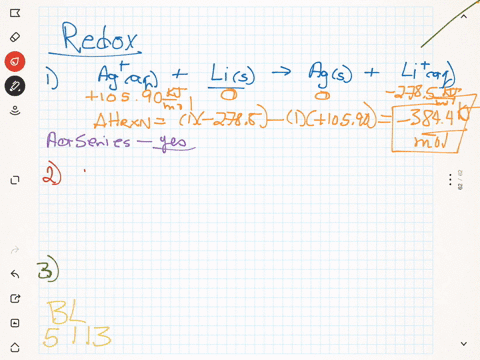 Redox
1) Ag⁺(aq) + Li(s) → Ag(s) + Li⁺(aq)
+105.90 kJ/mol 0 0 -278.5 kJ/mol
ΔHrxn = (1)(-278.5) - (1)(+105.90) = -384.4 kJ/mol
Act Series - yes
2)
3)
BL
5113